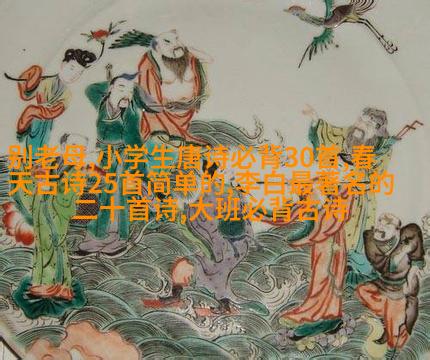 别老母,小学生唐诗必背30首,春
天古诗25首简单的,李白最著名的
二十首诗,大班必背古诗